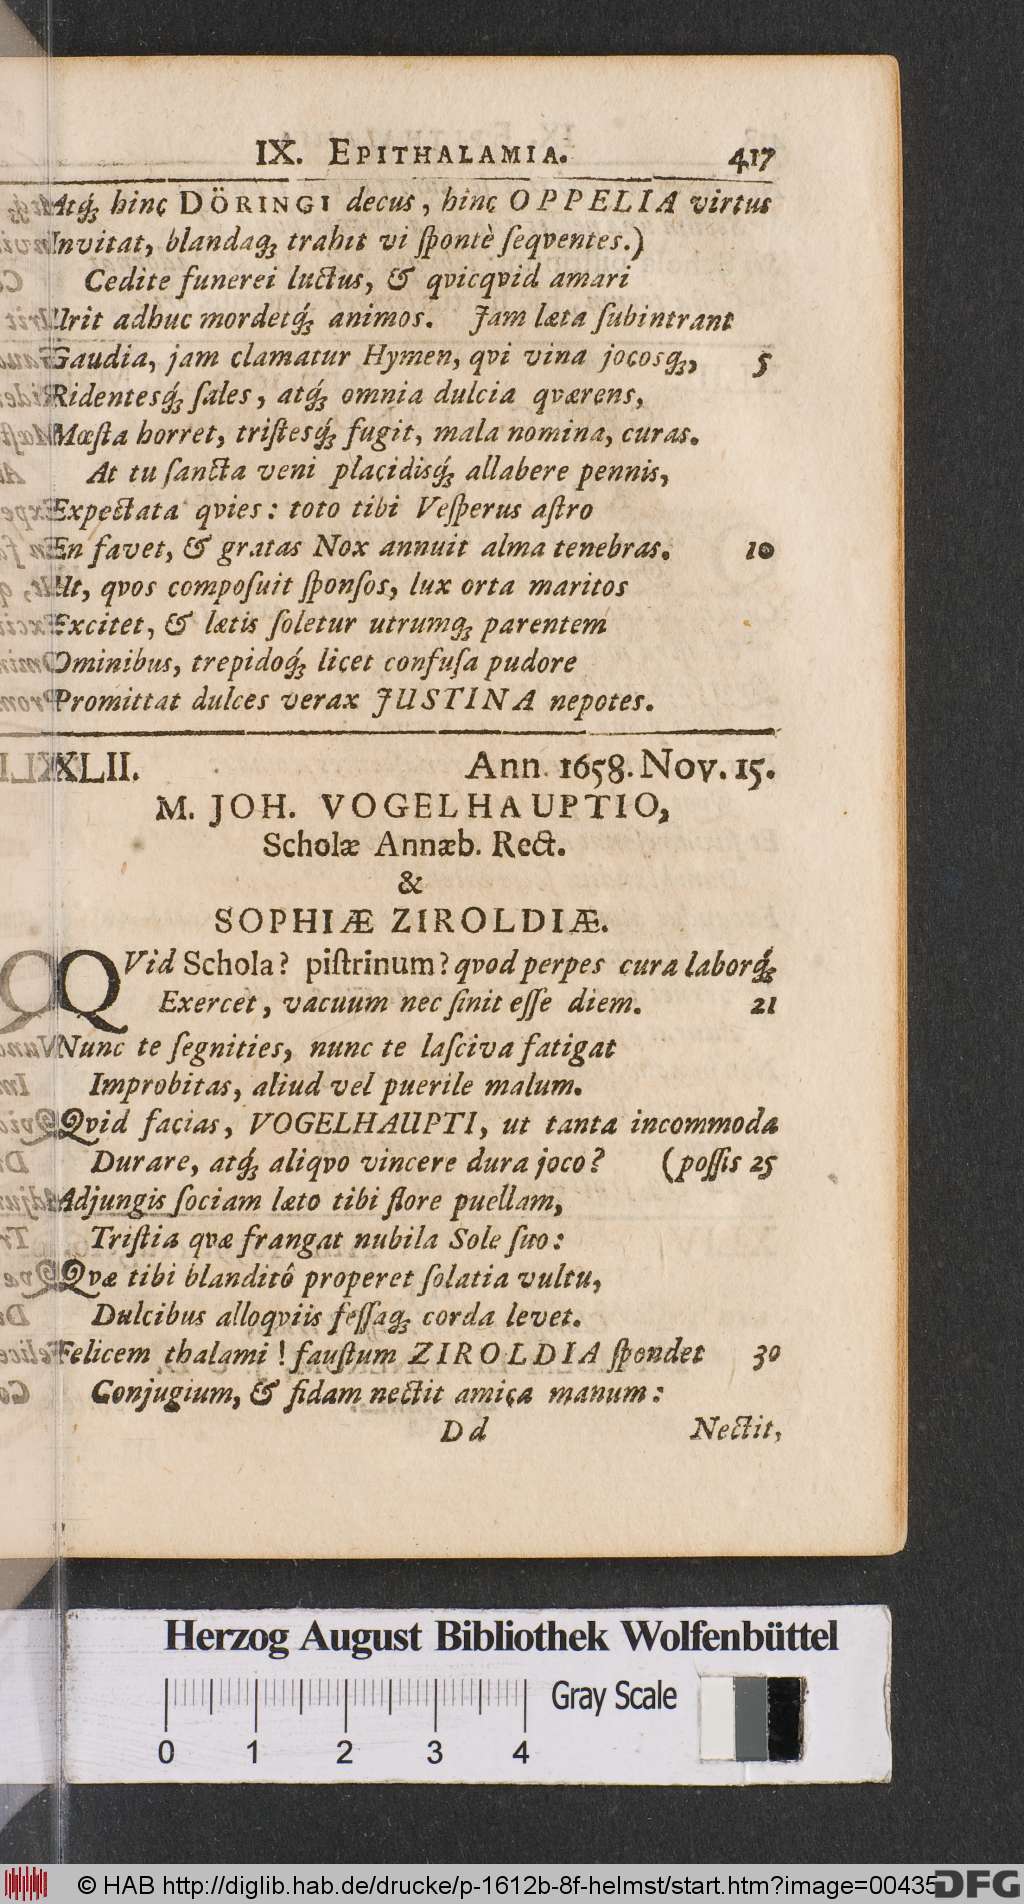 IX. EPITHALAMIA. 417
Atq́ꝫ hinc DÖRINGI decus, hinc OPPELIA virtus
Invitat, blandaqꝫ trahit vi ſpontè ſeqventes.)
Cedite funerei luctus, & qvicqvid amari
Urit adhuc mordetq́ꝫ animos. Jam læta ſubintrant
Gaudia, jam clamatur Hymen, qvi vina jocosqꝫ, 5
Ridentesq́ꝫ ſales, atq́ꝫ omnia dulcia qværens,
Mæſta horret, triſtesq́ꝫ fugit, mala nomina, curas.
At tu ſancta veni placidisq́ꝫ allabere pennis,
Expectata qvies: toto tibi Veſperus aſtro
En favet, & gratas Nox annuit alma tenebras. 10
Ut, qvos compoſuit ſponſos, lux orta maritos
Excitet, & lætis ſoletur utrumqꝫ parentem
Ominibus, trepidoq́ꝫ licet confuſa pudore
Promittat dulces verax JUSTINA nepotes.
XLII. Ann. 1658. Nov. 15.
M. JOH. VOGELHAUPTIO,
Scholæ Annæb. Rect.
&
SOPHIÆ ZIROLDIÆ.
QVid Schola? piſtrinum? qvod perpes cura laborq́ꝫ
Exercet, vacuum nec ſinit eſſe diem. 21
Nunc te ſegnities, nunc te laſciva fatigat
Improbitas, aliud vel puerile malum.
Qvid facias, VOGELHAUPTI, ut tanta incommoda
Durare, atq́ꝫ aliqvo vincere dura joco? (poſſis 25
Adjungis ſociam læto tibi flore puellam,
Triſtia qvæ frangat nubila Sole ſuo:
Qvæ tibi blanditô properet ſolatia vultu,
Dulcibus alloqviis feſſaqꝫ corda levet.
Felicem thalami! fauſtum ZIROLDIA ſpondet 30
Conjugium, & fidam nectit amica manum:
Dd Nectit,
Herzog August Bibliothek Wolfenbüttel
Gray Scale
0 1 2 3 4
© HAB http://diglib.hab.de/drucke/p-1612b-8f-helmst/start.htm?image=00435
DFG